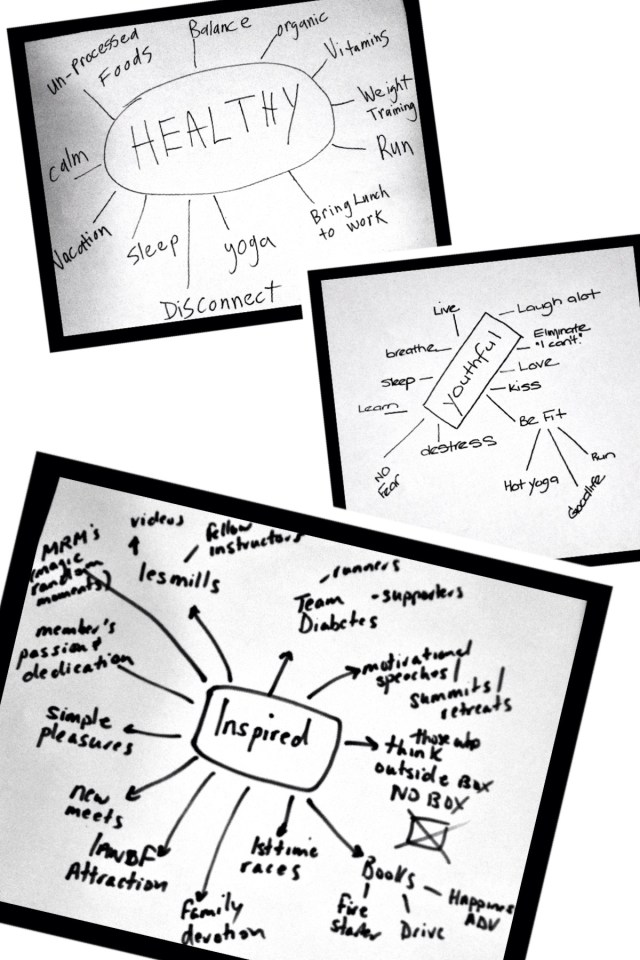 un-processed
Foods
Balance
organic
Vitamins
Weight
Training
Run
Bring Lunch
to work
yoga
Disconnect
Sleep
Vacation
calm
HEALTHY
Live
Laugh alot
Eliminate
"I can't."
Love
Kiss
Be Fit
Run
Goodlife
Hot yoga
destress
NO
Fear
Learn
sleep
breathe
youthful
MRM's
(magic
random
moments)
videos
fellow
instructors
lesmills
runners
Team
Diabetes
-supporters
motivational
speaches/
summits/
retreats
those who
think
outside Box
NO BOX
Books
Happiness
ADV
Drive
Fire
starter
1st time
races
Family
devotion
Attraction
new
meets
simple
pleasures
member's
passion &
dedication
Inspired